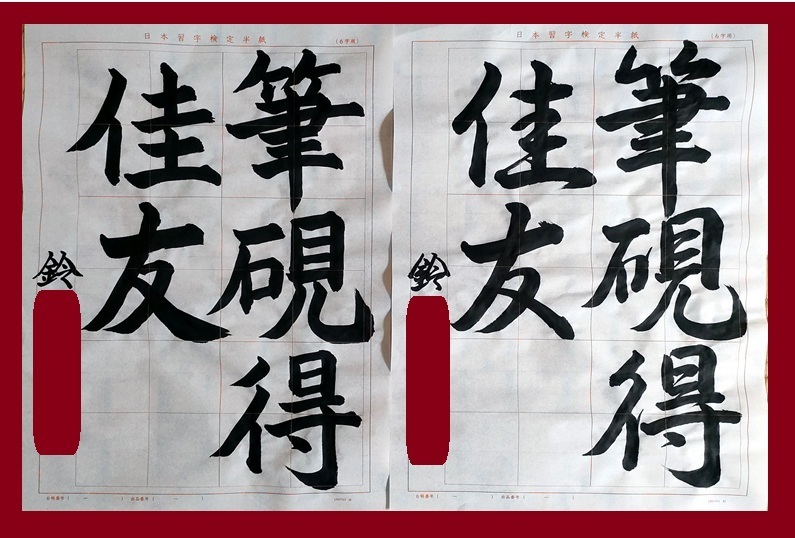 日本習字検定半紙
(6字用)
筆硯得
佳友
鈴
日本習字検定半紙
(6字用)
筆硯得
佳友
鈴